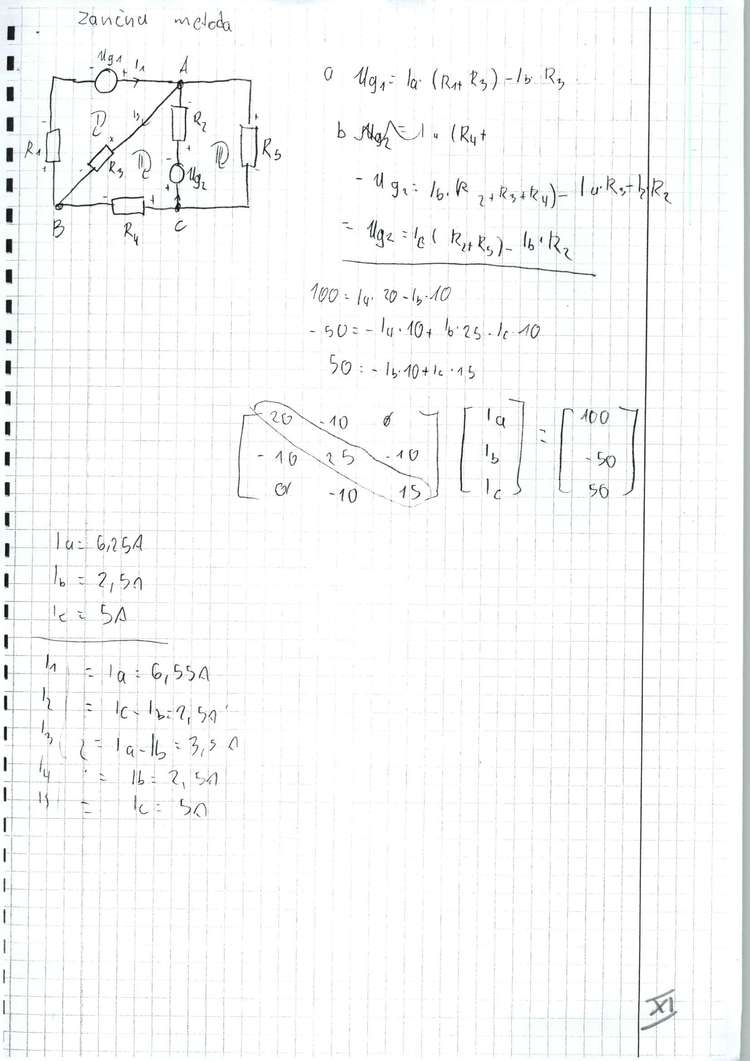 zančna metoda
Ug1 I1 A
I3
I R2
R1 R3 II III R5
Ug2
B R4 C
a Ug1 = Ia · (R1+R3) - Ib · R3
b Ug2 = I (R4+
- Ug2 = Ib · (R2+R3+R4) - Ia · R3 - Ic · R2
= Ug2 = Ic (R2+R5) - Ib · R2
100 = Ia · 20 - Ib · 10
- 50 = - Ia · 10 + Ib · 25 - Ic · 10
50 = - Ib · 10 + Ic · 15
20 -10 0 Ia 100
-10 25 -10 Ib = -50
0 -10 15 Ic 50
Ia = 6,25A
Ib = 2,5A
Ic = 5A
I1 = Ia = 6,55A
I2 = Ic - Ib = 2,5A
I3 = Ia - Ib = 3,5A
I4 = Ib = 2,5A
I5 = Ic = 5A
XI